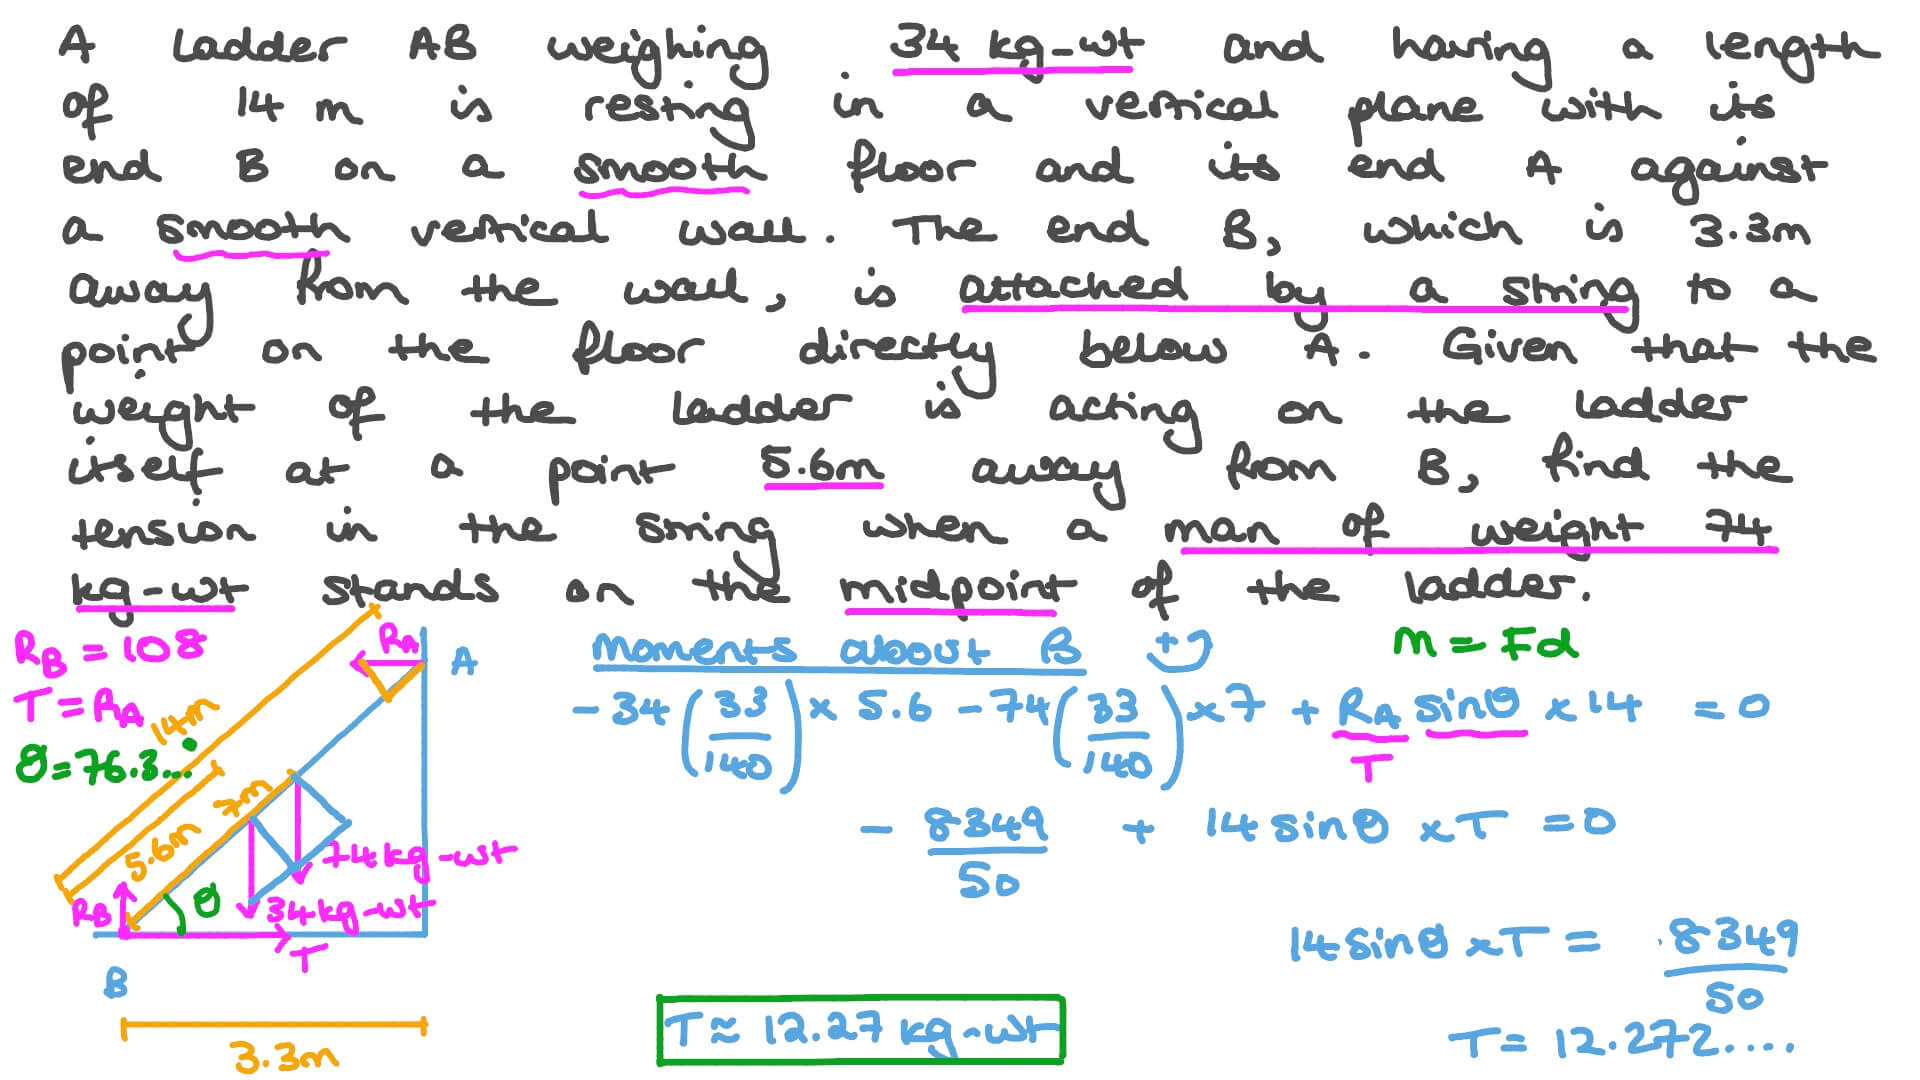 A ladder AB weighing 34 kg-wt and having a length
of 14 m is resting in a vertical plane with its
end B on a smooth floor and its end A against
a smooth vertical wall. The end B, which is 3.3m
away from the wall, is attached by a string to a
point on the floor directly below A. Given that the
weight of the ladder is acting on the ladder
itself at a point 5.6m away from B, find the
tension in the string when a man of weight 74
kg-wt stands on the midpoint of the ladder.
R_B = 108
T = R_A
θ = 76.3...°
14m
7m
5.6m
R_A
A
74kg-wt
34kg-wt
R_B
θ
T
B
3.3m
Moments about B +
M = Fd
-34(33/140) × 5.6 - 74(33/140) × 7 + R_A sinθ × 14 = 0
T
- 8349/50 + 14 sinθ × T = 0
14 sinθ × T = 8349/50
T = 12.272....
T ≈ 12.27 kg-wt